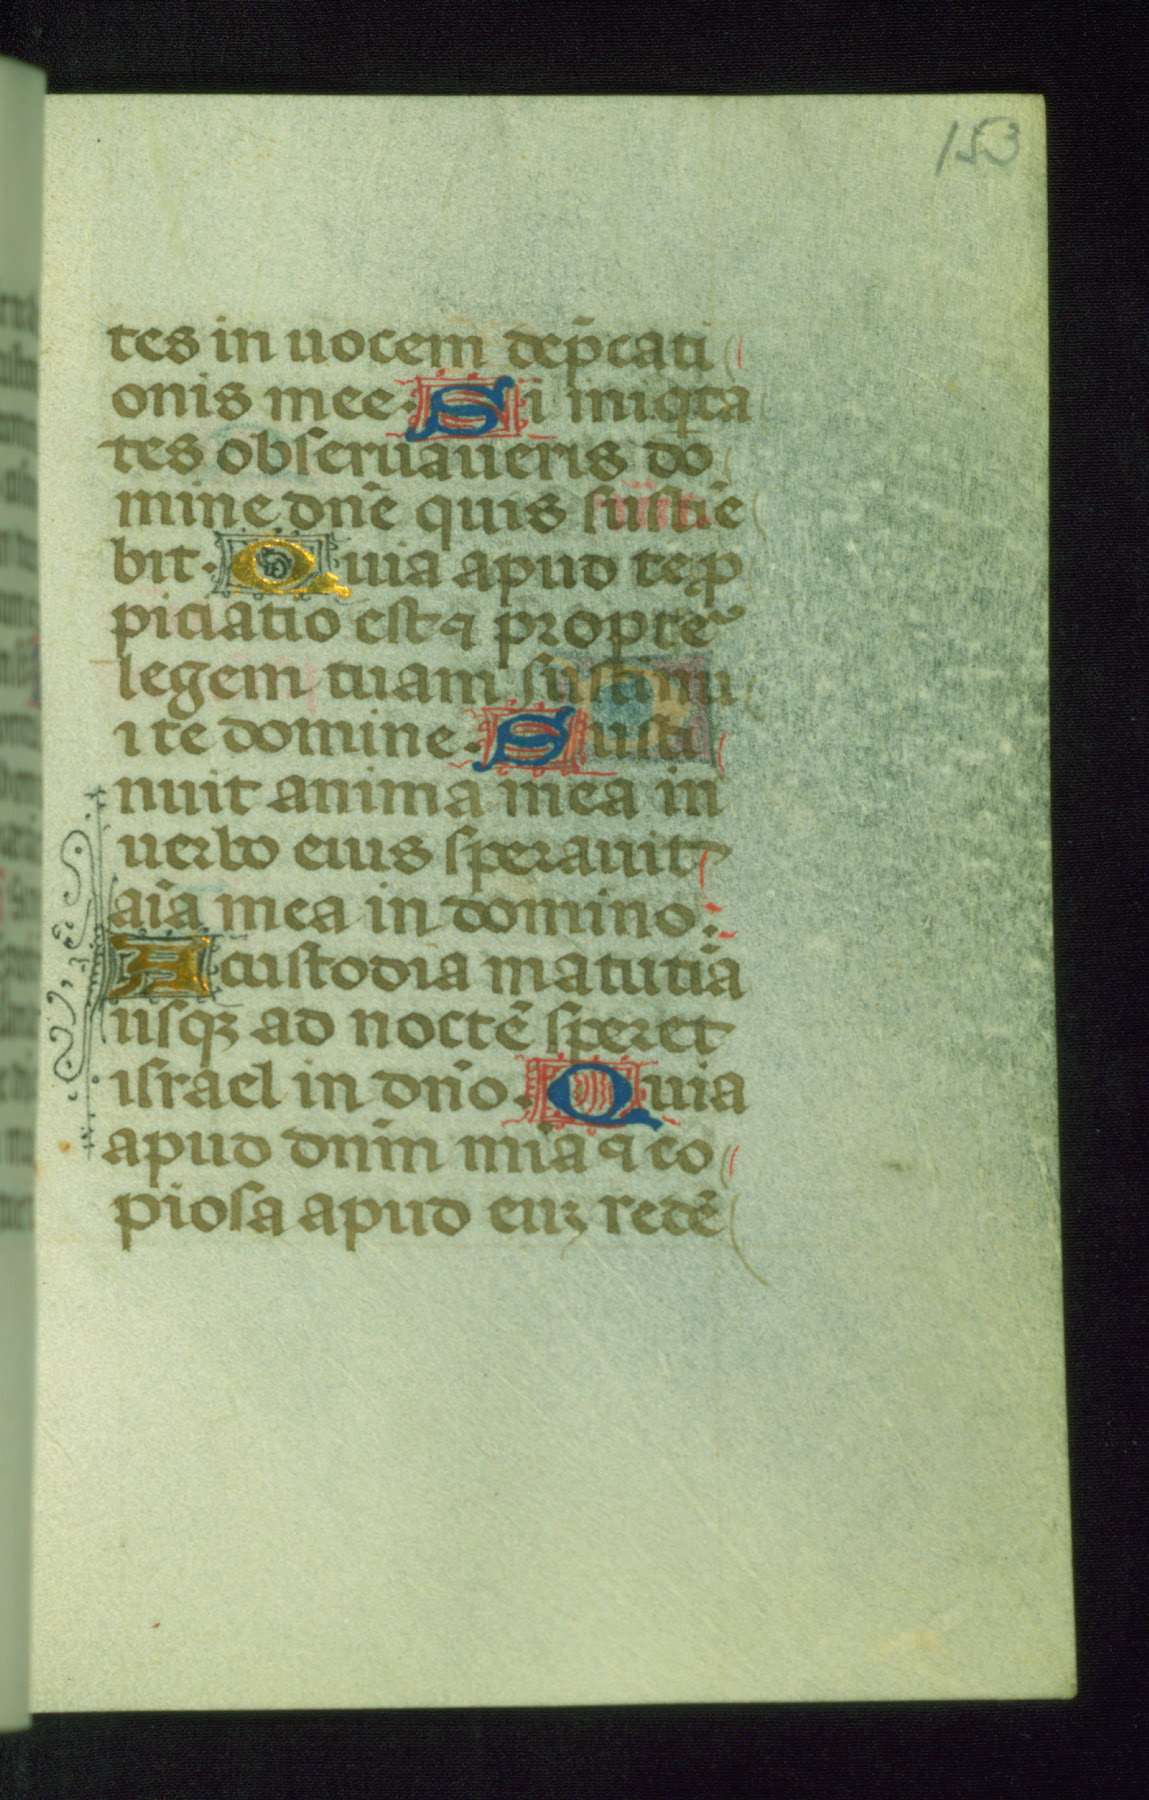 153
tes in uocem dep̄cati
onis mee. Si iniq̇ta
tes obseruaueris do
mine dn̄e quis sustīe
bit. Quia apud te ꝓ
piciatio est ⁊ propt̄e
legem tuam sustinu
i te domine. Susti
nuit anima mea in
uerbo eius sperauit
aīa mea in domino:
A custodia matutīa
usqꝫ ad noctē speret
israel in dn̄o. Quia
apud dnm̄ mīa ⁊ co
piosa apud euꝫ redē